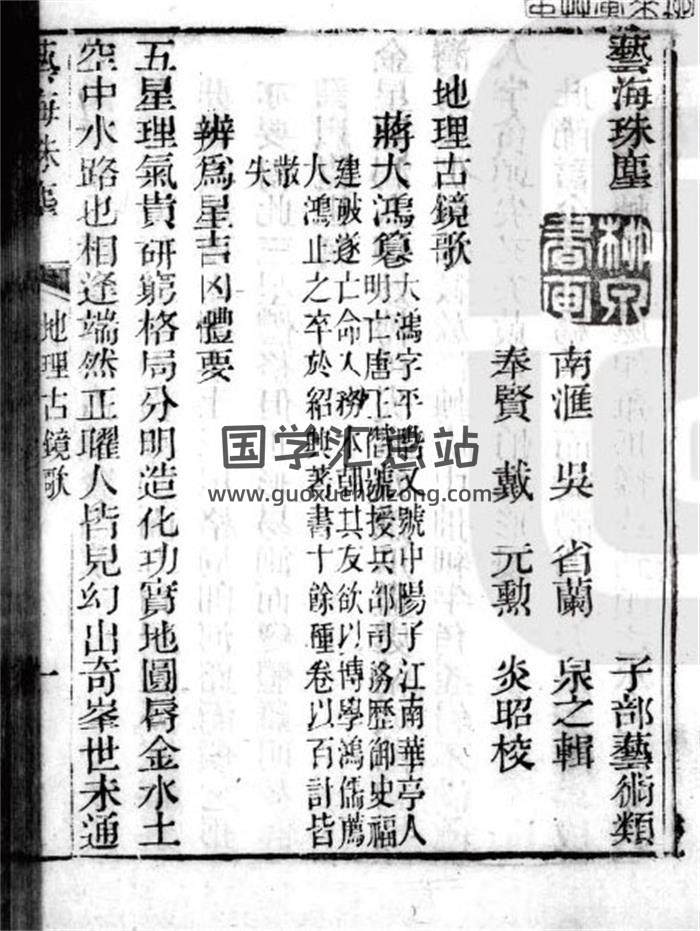 藝海珠塵 子部藝術類
南滙 吳 省蘭 泉之輯
奉賢 戴 元勲 炎昭校
地理古鏡歌
蔣大鴻篹 大鴻字平階又號中陽子江南華亭人
明亡唐王僭號授兵部司務歷御史福
建破遂亡命人 本朝其友欲以博學鴻儒薦
大鴻止之卒於紹興著書十餘種卷以百計皆
散
失
辨爲星吉凶體要
五星理氣貴研窮格局分明造化功實地圓唇金水土
空中水路也相逢端然正曜人皆見幻出奇峯世未通
藝海珠塵 地理古鏡歌 一
柳泉
書画
国学汇总站
www.guoxuehuizong.com